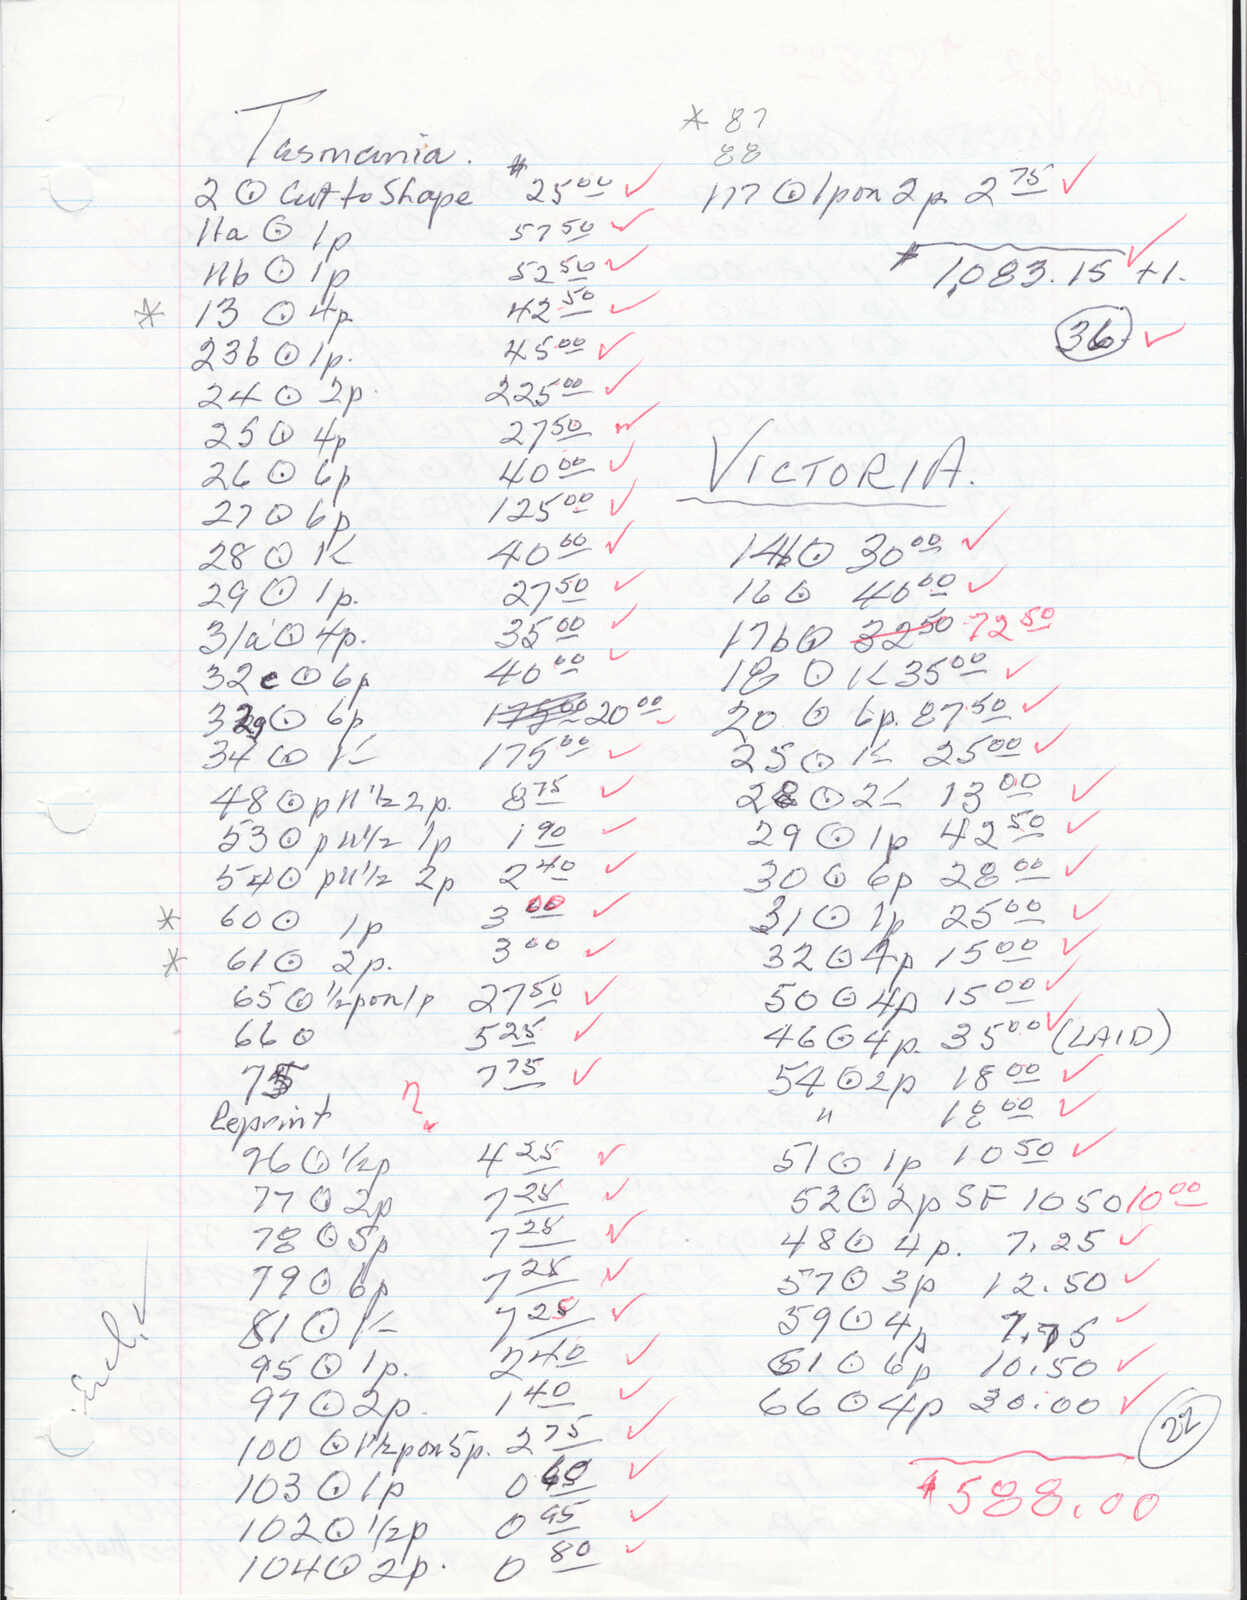 Tasmania.
2 ⊙ Cut to Shape $25 00 ✓
11a ⊙ 1p 57 50 ✓
11b ⊙ 1p 52 50 ✓
* 13 ⊙ 4p 42 50 ✓
23b ⊙ 1p. 45 00 ✓
24 ⊙ 2p. 225 00 ✓
25 ⊙ 4p 27 50 ✓
26 ⊙ 6p 40 00 ✓
27 ⊙ 6p 125 00 ✓
28 ⊙ 1/- 40 00 ✓
29 ⊙ 1p. 27 50 ✓
31a ⊙ 4p. 35 00 ✓
32c ⊙ 6p 40 00 ✓
32g ⊙ 6p 175 00 20 00 ✓
34 ⊙ 1/- 175 00 ✓
48 ⊙ p11½ 2p. 8 75 ✓
53 ⊙ p11½ 1p 1 90 ✓
54 ⊙ p11½ 2p 2 40 ✓
* 60 ⊙ 1p 3 00 ✓
* 61 ⊙ 2p. 3 00 ✓
65 ⊙ ½p on 1p 27 50 ✓
66 ⊙ 5 25 ✓
75 7 75 ✓
Reprint
76 ⊙ ½p 4 25 ✓
77 ⊙ 2p 7 25 ✓
78 ⊙ 5p 7 25 ✓
79 ⊙ 6p 7 25 ✓
81 ⊙ 1/- 7 25 ✓
95 ⊙ 1p. 2 40 ✓
97 ⊙ 2p. 1 40 ✓
100 ⊙ 1½p on 5p. 2 75 ✓
103 ⊙ 1p 0
102 ⊙ ½p 0 95 ✓
104 ⊙ 2p. 0 80 ✓
* 87
88
117 ⊙ 1p on 2p. 2 75 ✓
$1,083.15 + 1.
36 ✓
VICTORIA.
14b ⊙ 30 00 ✓
16 ⊙ 40 00 ✓
17b ⊙ 32 50 72 50
18 ⊙ 1/- 35 00 ✓
20 ⊙ 6p. 87 50 ✓
25 ⊙ 1/- 25 00 ✓
28 ⊙ 2/- 13 00 ✓
29 ⊙ 1p 42 50 ✓
30 ⊙ 6p 28 00 ✓
31 ⊙ 1p 25 00 ✓
32 ⊙ 4p 15 00 ✓
50 ⊙ 4p 15 00 ✓
46 ⊙ 4p. 35 00 ✓ (LAID)
54 ⊙ 2p 18 00 ✓
" 18 00 ✓
51 ⊙ 1p 10 50 ✓
52 ⊙ 2p SF 10 50 10 00
48 ⊙ 4p. 7.25 ✓
57 ⊙ 3p 12.50 ✓
59 ⊙ 4p 7.75 ✓
61 ⊙ 6p 10.50 ✓
66 ⊙ 4p 30.00 ✓
22
$588.00